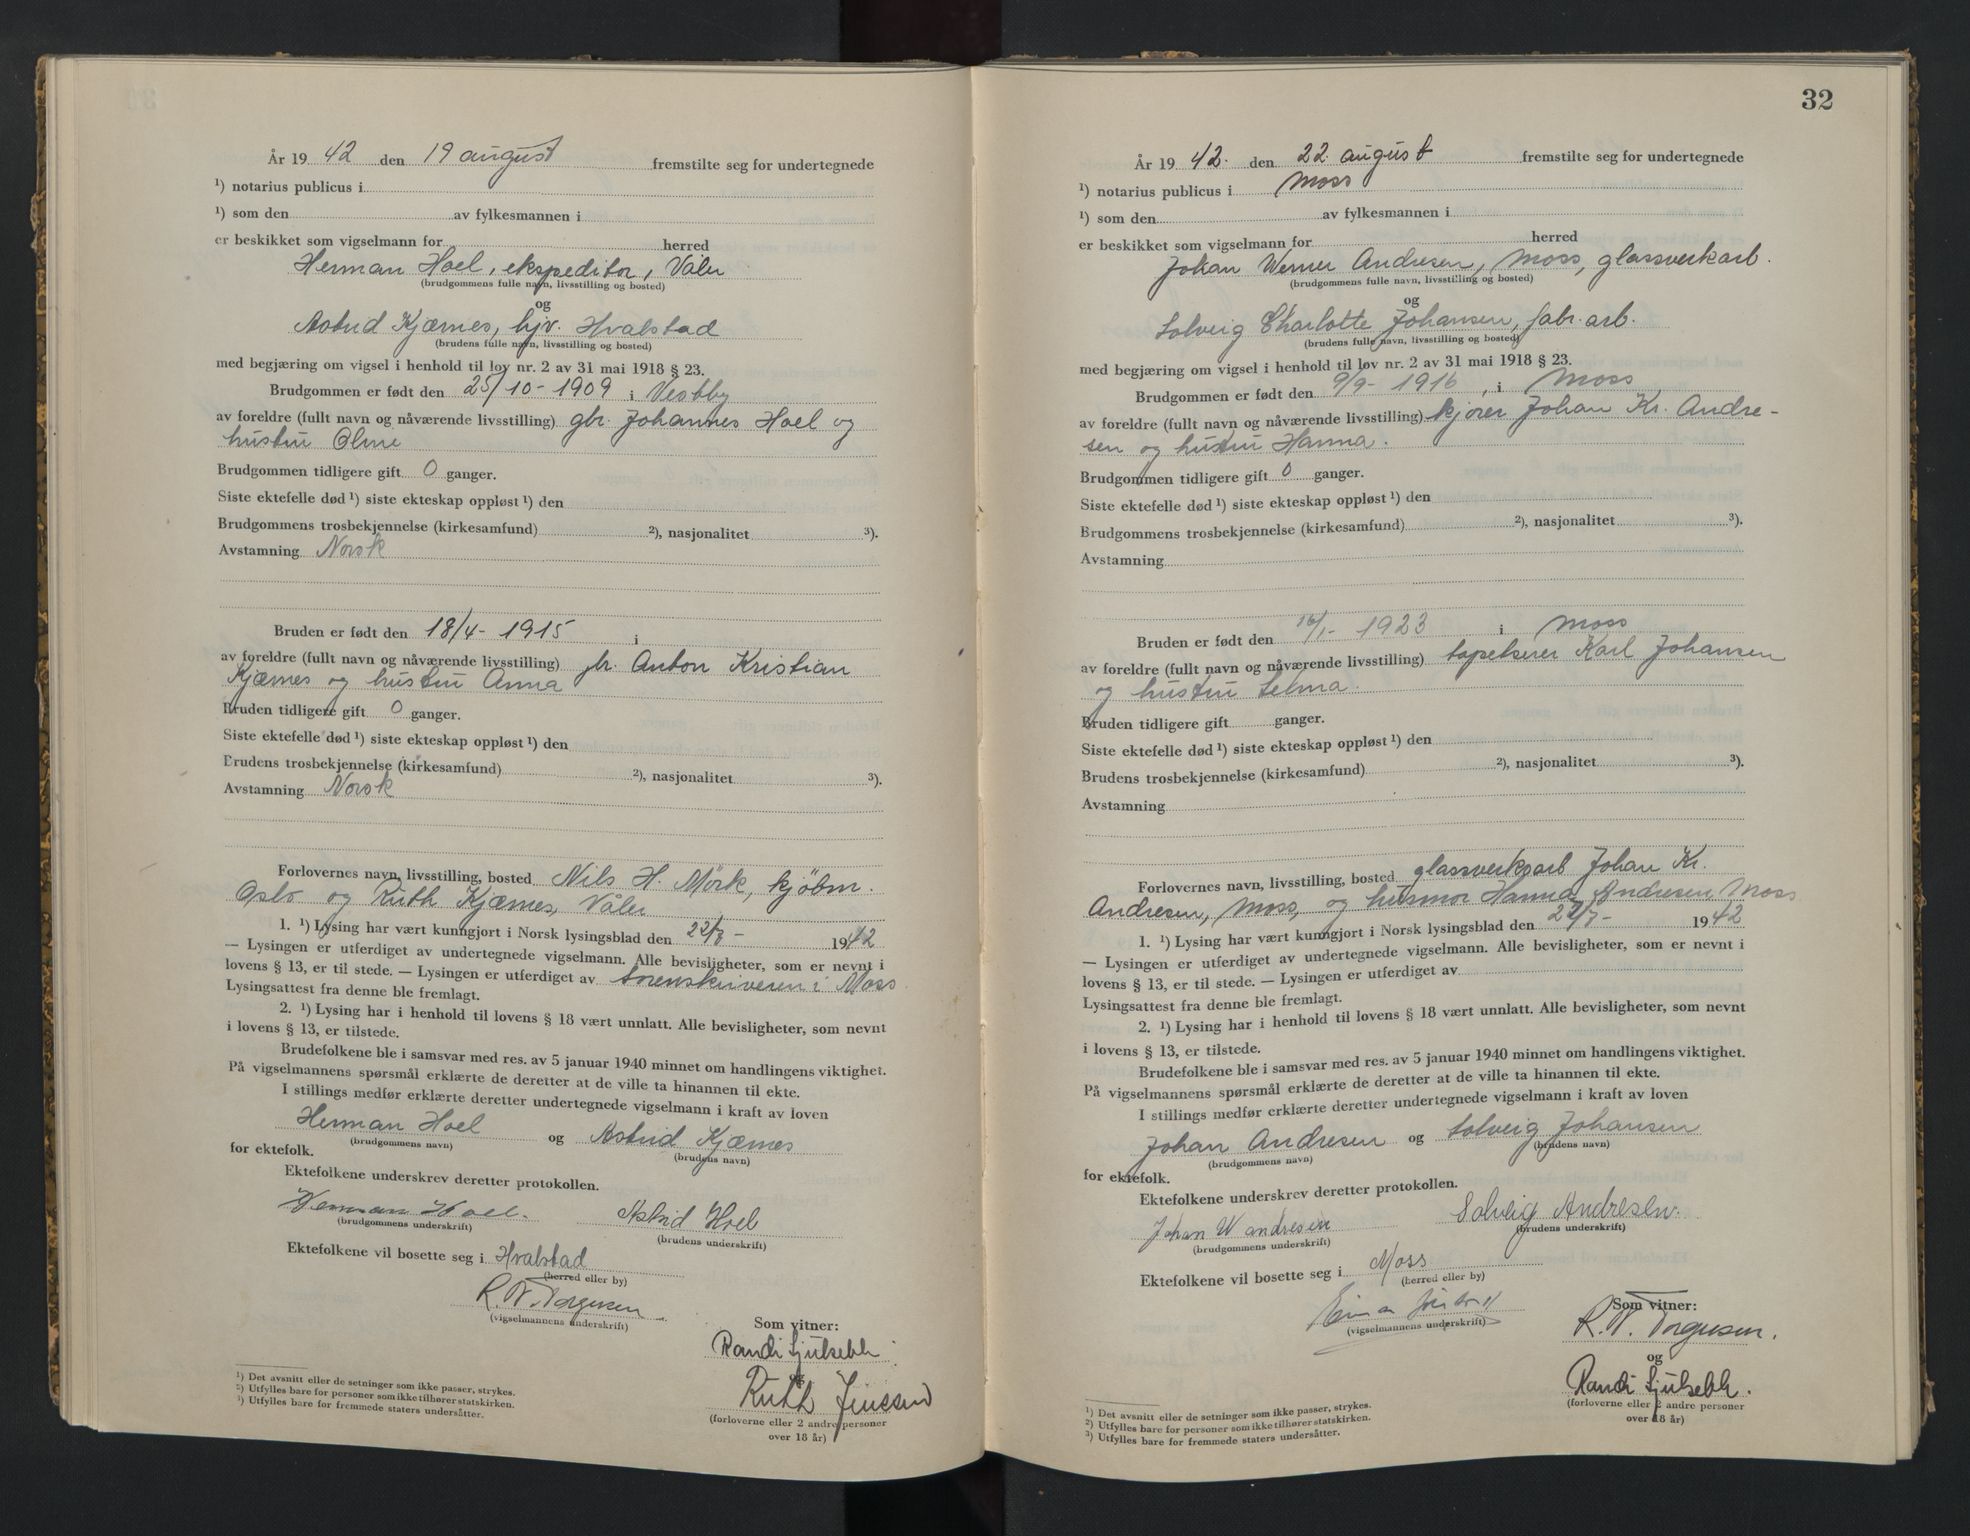 År 19 42 den 19 august fremstilte seg for undertegnede
¹) notarius publicus i
¹) som den av fylkesmannen i
er beskikket som vigselmann for herred
Herman Hoel, ekspeditør, Våler
(brudgommens fulle navn, livsstilling og bosted)
og
Astrid Kjærnes, hjv. Hvalstad
(brudens fulle navn, livsstilling og bosted)
med begjæring om vigsel i henhold til lov nr. 2 av 31 mai 1918 § 23.
Brudgommen er født den 25/10 - 1909 i Vestby
av foreldre (fullt navn og nåværende livsstilling) gbr. Johannes Hoel og
hustru Oline
Brudgommen tidligere gift 0 ganger.
Siste ektefelle død ¹) siste ekteskap oppløst ¹) den
Brudgommens trosbekjennelse (kirkesamfund) ²), nasjonalitet ³).
Avstamning Norsk
Bruden er født den 18/4 - 1915 i
av foreldre (fullt navn og nåværende livsstilling) gbr. Anton Kristian
Kjærnes og hustru Anna
Bruden tidligere gift 0 ganger.
Siste ektefelle død ¹) siste ekteskap oppløst ¹) den
Brudens trosbekjennelse (kirkesamfund) ²), nasjonalitet ³).
Avstamning Norsk
Forlovernes navn, livsstilling, bosted Nils H. Mörk, kjöbm.
Oslo og Ruth Kjærnes, Våler
1. ¹) Lysing har vært kunngjort i Norsk lysingsblad den 22/7 - 1942
— Lysingen er utferdiget av undertegnede vigselmann. Alle bevisligheter, som er nevnt i
lovens § 13, er til stede. — Lysingen er utferdiget av sorenskriveren i Moss
Lysingsattest fra denne ble fremlagt.
2. ¹) Lysing har i henhold til lovens § 18 vært unnlatt. Alle bevisligheter, som nevnt
i lovens § 13, er tilstede.
Brudefolkene ble i samsvar med res. av 5 januar 1940 minnet om handlingens viktighet.
På vigselmannens spørsmål erklærte de deretter at de ville ta hinannen til ekte.
I stillings medfør erklærte deretter undertegnede vigselmann i kraft av loven
Herman Hoel og Astrid Kjærnes
(brudgommens navn) (brudens navn)
for ektefolk.
Ektefolkene underskrev deretter protokollen.
Herman Hoel. Astrid Hoel
(brudgommens underskrift) (brudens underskrift)
Ektefolkene vil bosette seg i Hvalstad
(herred eller by)
R. W. Torgersen
(vigselmannens underskrift)
Som vitner:
Randi
og
Ruth Jenssen
(forloverne eller 2 andre personer
over 18 år)
¹) Det avsnitt eller de setninger som ikke passer, strykes.
²) Utfylles bare for personer som ikke tilhører statskirken.
³) Utfylles bare for fremmede staters undersåtter.
32
År 19 42. den 22. august fremstilte seg for undertegnede
¹) notarius publicus i Moss
¹) som den av fylkesmannen i
er beskikket som vigselmann for herred
Johan Werner Andresen, Moss, glassverkarb.
(brudgommens fulle navn, livsstilling og bosted)
og
Solveig Charlotte Johansen, fabr. arb.
(brudens fulle navn, livsstilling og bosted)
med begjæring om vigsel i henhold til lov nr. 2 av 31 mai 1918 § 23.
Brudgommen er født den 9/9 - 1916, i Moss
av foreldre (fullt navn og nåværende livsstilling) kjører Johan Kr. Andre-
sen og hustru Hanna.
Brudgommen tidligere gift 0 ganger.
Siste ektefelle død ¹) siste ekteskap oppløst ¹) den
Brudgommens trosbekjennelse (kirkesamfund) ²), nasjonalitet ³).
Avstamning
Bruden er født den 16/1 - 1923 i Moss
av foreldre (fullt navn og nåværende livsstilling) tapetserer Karl Johansen
og hustru Selma.
Bruden tidligere gift ganger.
Siste ektefelle død ¹) siste ekteskap oppløst ¹) den
Brudens trosbekjennelse (kirkesamfund) ²), nasjonalitet ³).
Avstamning
Forlovernes navn, livsstilling, bosted glassverksarb Johan Kr.
Andresen, Moss, og husmor Hanna Andresen, Moss
1. ¹) Lysing har vært kunngjort i Norsk lysingsblad den 22/7 - 1942
— Lysingen er utferdiget av undertegnede vigselmann. Alle bevisligheter, som er nevnt i
lovens § 13, er til stede. — Lysingen er utferdiget av
Lysingsattest fra denne ble fremlagt.
2. ¹) Lysing har i henhold til lovens § 18 vært unnlatt. Alle bevisligheter, som nevnt
i lovens § 13, er tilstede.
Brudefolkene ble i samsvar med res. av 5 januar 1940 minnet om handlingens viktighet.
På vigselmannens spørsmål erklærte de deretter at de ville ta hinannen til ekte.
I stillings medfør erklærte deretter undertegnede vigselmann i kraft av loven
Johan Andresen og Solveig Johansen
(brudgommens navn) (brudens navn)
for ektefolk.
Ektefolkene underskrev deretter protokollen.
Johan W Andresen Solveig Andresen.
(brudgommens underskrift) (brudens underskrift)
Ektefolkene vil bosette seg i Moss
(herred eller by)
(vigselmannens underskrift)
Som vitner:
R. W. Torgersen.
og
Randi
(forloverne eller 2 andre personer
over 18 år)
¹) Det avsnitt eller de setninger som ikke passer, strykes.
²) Utfylles bare for personer som ikke tilhører statskirken.
³) Utfylles bare for fremmede staters undersåtter.